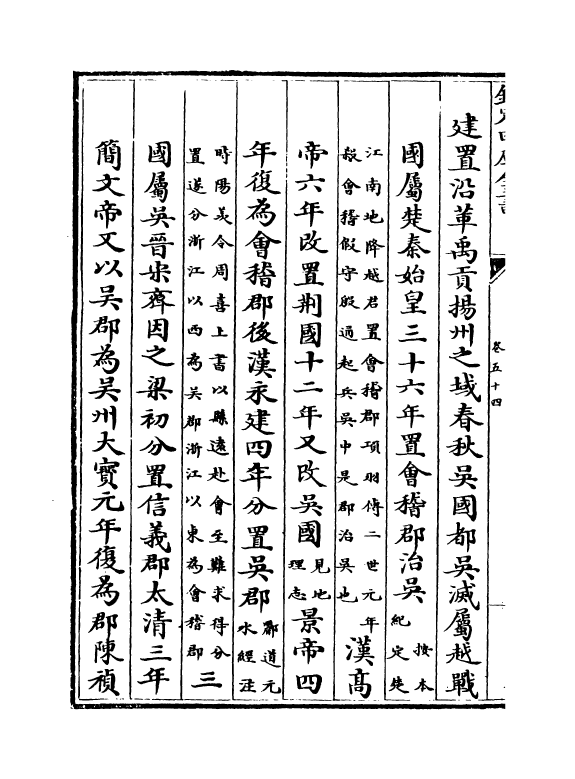 欽定四庫全書
卷五十四
建置沿革禹貢揚州之域春秋吳國都吳滅屬越戰
國屬楚秦始皇三十六年置會稽郡治吳
按本
紀定楚
江南地降越君置會稽郡項羽傳二世元年
殺會稽假守殷通起兵吳中是郡治吳也
漢髙
帝六年改置荆國十二年又改吳國
見地
理志
景帝四
年復為會稽郡後漢永建四年分置吳郡
酈道元
水經注
時陽羨令周喜上書以縣遠赴會至難求得分
置遂分浙江以西為吳郡浙江以東為會稽郡
三
國屬吳晉宋齊因之梁初分置信義郡太清三年
簡文帝又以吳郡為吳州大寶元年復為郡陳禎